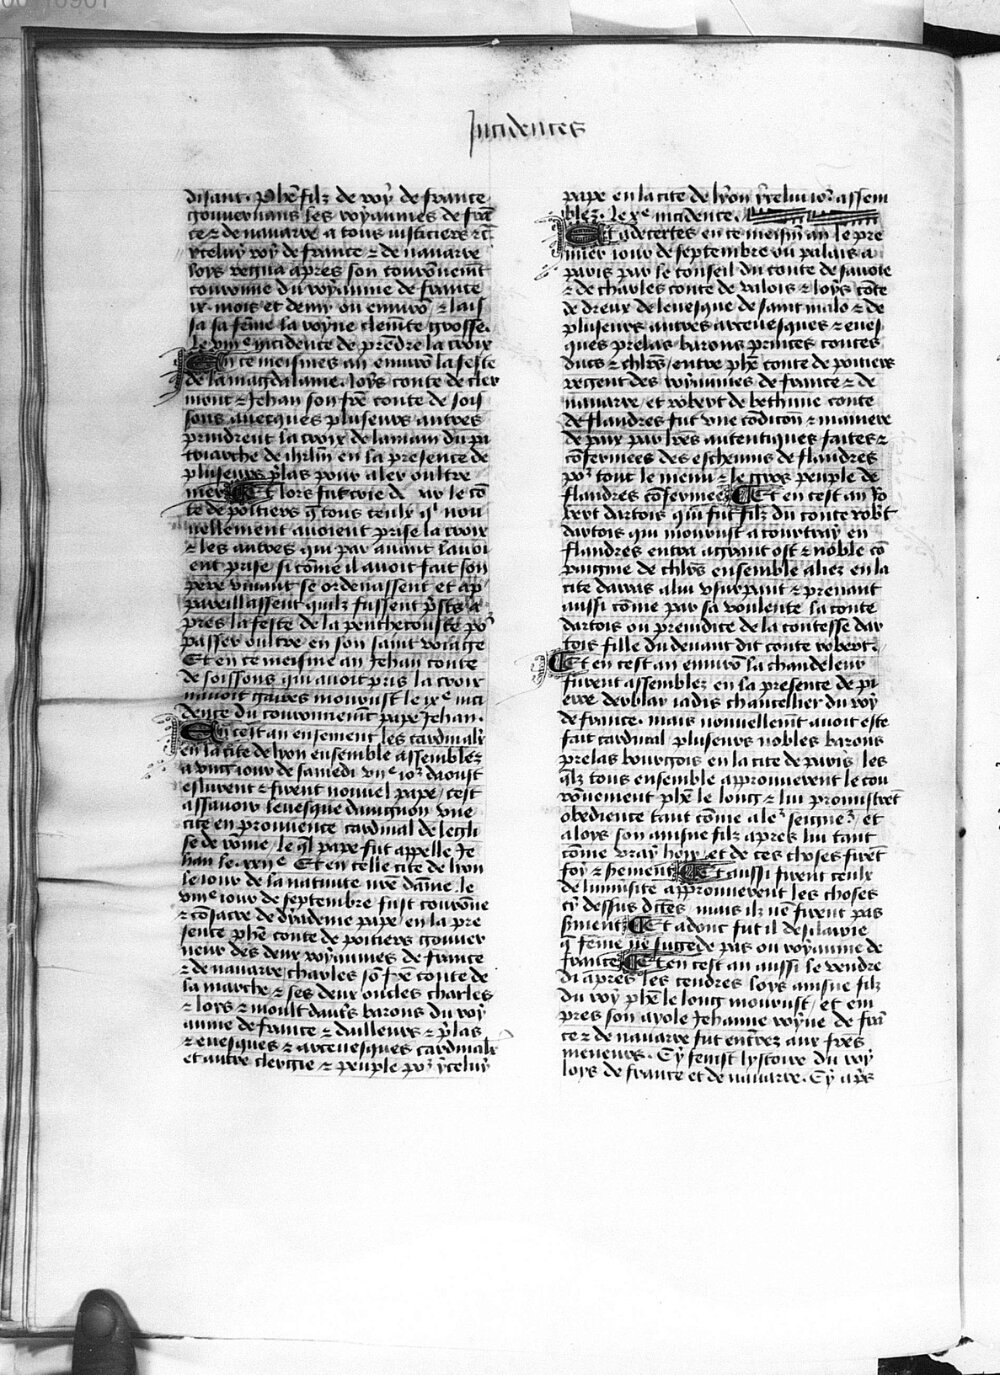 Incidences
disant. Phē filz de roy de france
gouvernans les royaumes de frā
ce ⁊ de navarre a tous iusticiers ⁊ c̄
ycelui roy de france ⁊ de navarre
loys regna apres son couronnemt̄
couronne du royaume de france
ix. mois et demy ou environ ⁊ lais
sa sa fēme la royne clemēte grosse.
Le viiie incidence de prēdre la croix
En ce meismes an environ la feste
de la magdalaine. loys conte de cler
mont ⁊ Jehan son frē conte de sois
sons avecques plusieurs autres
prindrent la croix de la main du pa
triarche de ihrlm̄ en la presence de
plusieurs p̄las pour aler oultre
mer Et lors fut crie de par le cō
te de poitiers q̄ tous ceulx qⁱ nou
vellement avoient prise la croix
⁊ les autres qui par avant lavoi
ent prise si cōme il avoit fait son
pere vivant se ordenassent et ap
pareillassent quilz fussent p̄sts a
pres la feste de la penthecouste poʳ
passer oultre en son saint voiage
Et en ce meisme an Jehan conte
de soissons qui avoit pris la croix
navoit gaires mourust le ixe inci
dence du couronnemt̄ pape Jehan.
En cest an ensement les cardinalx
en la cite de lyon ensemble assemblez
a ung iour de samedi viie ioʳ daoust
eslurent ⁊ firent nouvel pape / cest
assavoir levesque davignon une
cite en prouvence cardinal de legli
se de rōme. le q̄l pape fut appelle Je
han le xxiie Et en celle cite de lyon
le iour de la nativite nr̄e dame. le
viiie iour de septembre fust courōne
⁊ cōsacre de dyademe pape / en la pre
sente phē conte de poitiers gouver
neur des deux royaumes de france
⁊ de navarre / charles sō frē conte de
la marche ⁊ ses deux oncles charles
⁊ loys ⁊ moult dautres barons du roy
aume de france ⁊ dailleurs ⁊ p̄las
⁊ evesques ⁊ arcevesques cardinalx
et autre clergie ⁊ peuple poʳ ycelui
pape en la cite de lyon ycelui ioʳ assem
blez. le xe incidence.
Et adecertes en ce meism̄ an le pre
mier iour de septembre ou palais a
paris par le conseil du conte de savoie
⁊ de charles conte de valois ⁊ loys cōte
de dreux de levesque de saint malo ⁊ de
plusieurs autres arcevesques ⁊ eves
ques prelas barons princes contes
ducs ⁊ chlr̄s / entre phē conte de poitiers
regent des royaumes de france ⁊ de
navarre et robert de bethune conte
de flandres fut une cōdiciōn ⁊ maniere
de paix par lr̄es autentiques faites ⁊
cōfermees des eschevins de flandres
poʳ tout le menu ⁊ le gros peuple de
flandres cōfermee Et en cest an Ro
bert dartois qui fut filz du conte rob̄t
dartois qui mourust a courtray en
flandres entra a grant ost ⁊ noble cō
paignie de chlr̄s ensemble aliez en la
cite darras a lui usurpant ⁊ prenant
aussi cōme par sa voulente la conte
dartois ou preiudice de la contesse dar
tois fille du devant dit conte robert.
Et en cest an environ la chandeleur
furent assemblez en la presence de pi
erre derblay iadis chancellier du roy
de france. mais nouvellemt̄ avoit este
fait cardinal / plusieurs nobles barons
prelas bourgois en la cite de paris les
q̄lz tous ensemble approuverent le cou
rōnement phē le long ⁊ lui promistrēt
obedience tant cōme a leʳ seigneʳ, et
a loys son ainsne filz apres lui tant
cōme vray hoir et de ces choses firēt
foy ⁊ serement Et aussi firent ceulx
de luniversite approuverent les choses
cy dessus dictes mais ilz ne firent pas
serment Et adonc fut il desclairie
q̄ fēme ne succede pas ou royaume de
france Et en cest an aussi le vendre
di apres les cendres loys ainsne filz
du roy phē le long mourust / et em
pres son ayole Jehanne royne de frā
ce ⁊ de navarre fut enterrez aux frēs
meneurs. Cy fenist lystoire du roy
loys de france et de navarre. Cy apr̄s